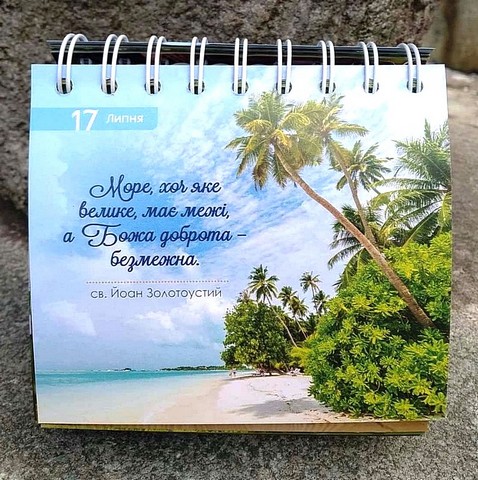 17 Липня
Море, хоч яке
велике, має межі,
а Божа доброта –
безмежна.
св. Йоан Золотоустий